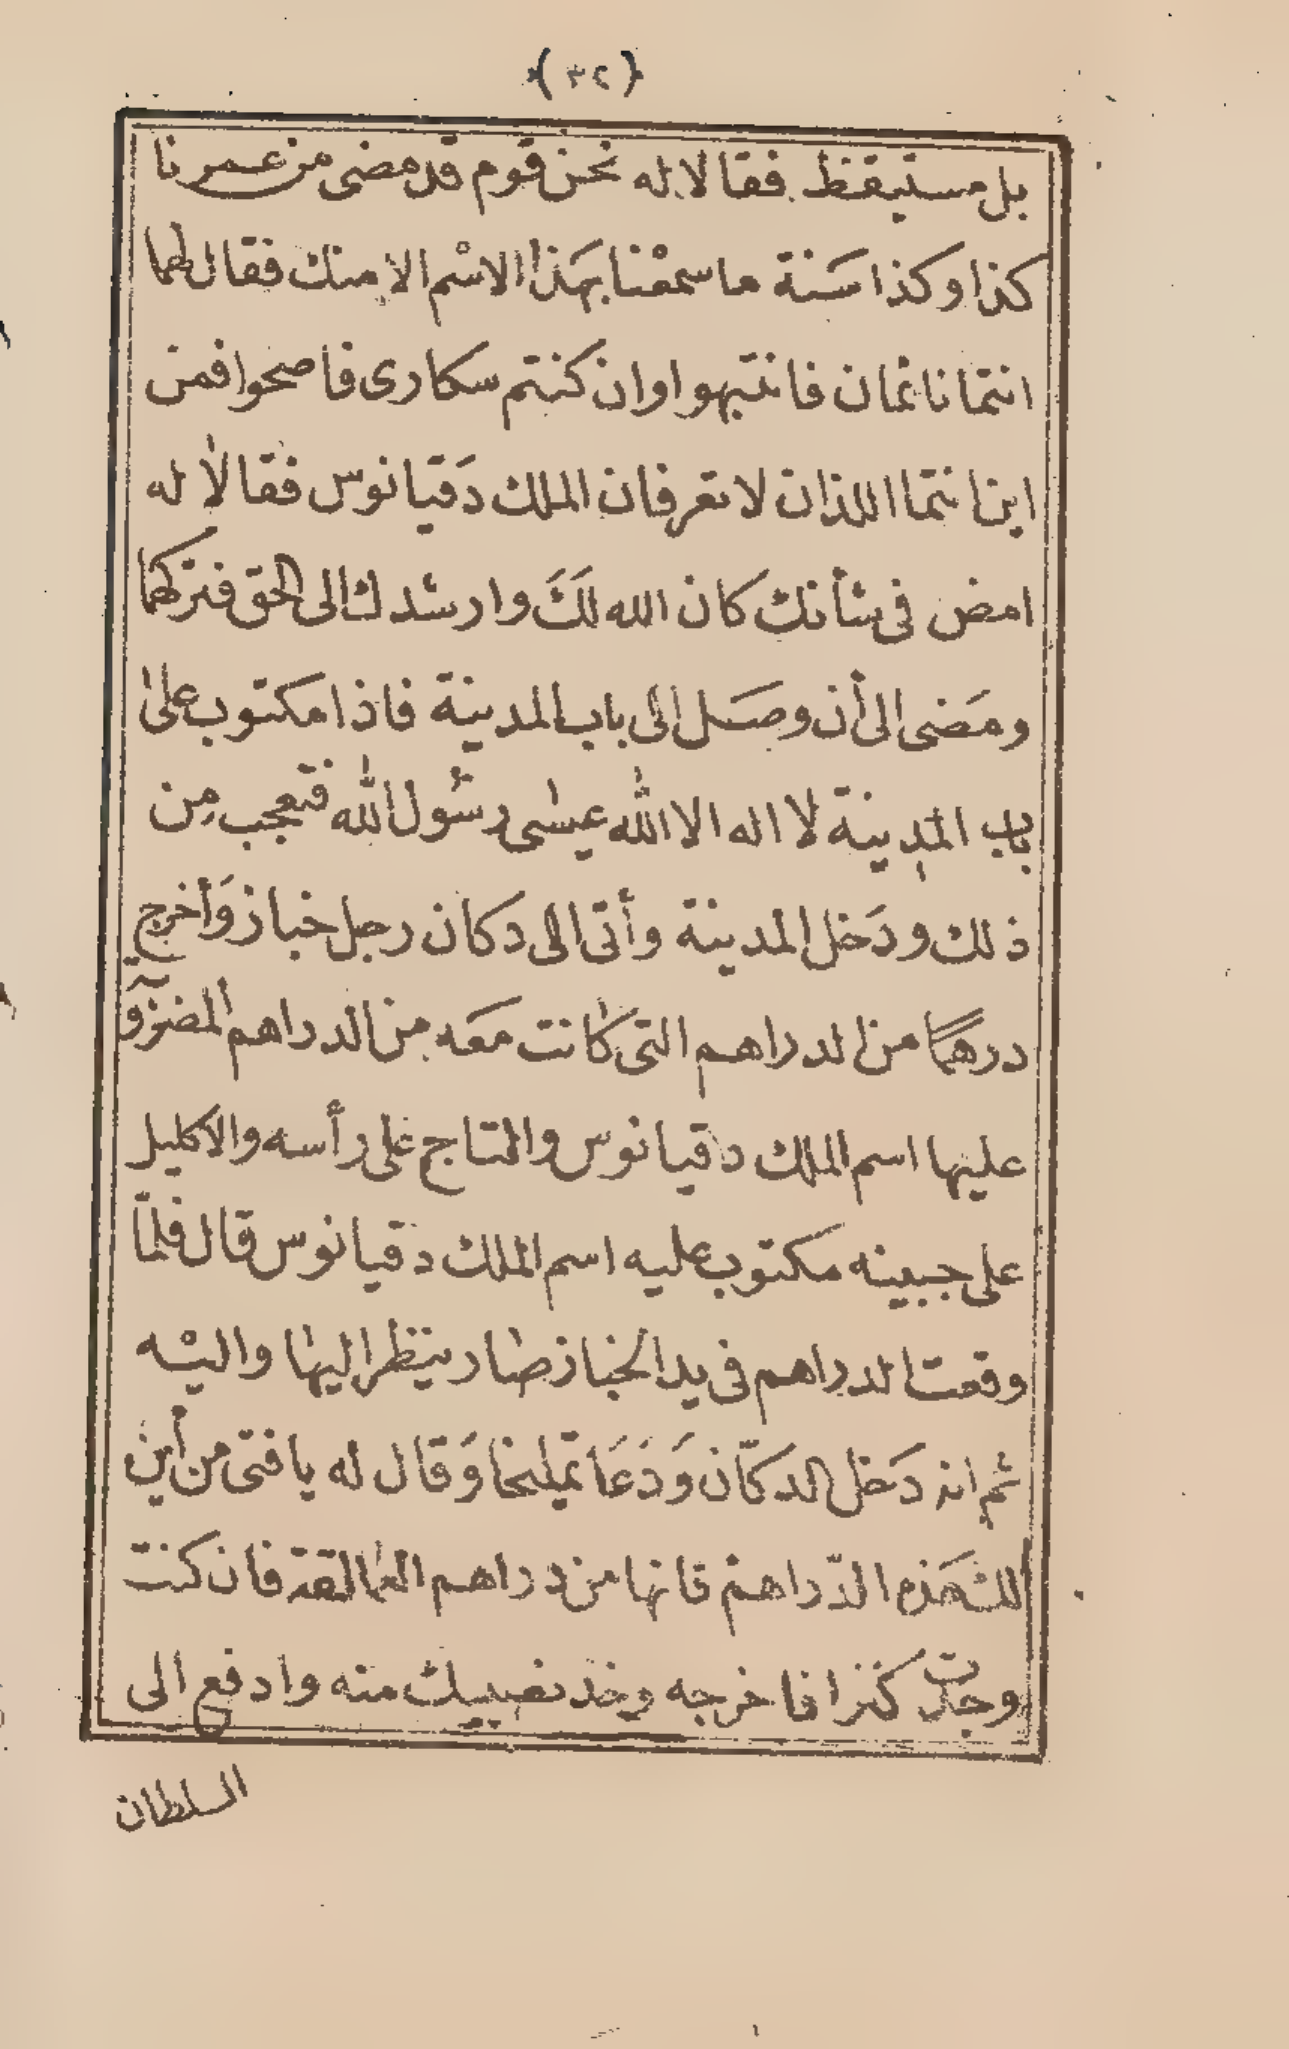 (٣٢)
بل مستيقظ فقالا له نحن قوم قد مضى من عمرنا
كذا وكذا سَنة ما سمعْنا بهَذا الاسْم الا منك فقال لهما
انتما نائمان فانتبهوا وان كنتم سكارى فاصحوا فمن
اين انتما اللذان لا تعرفان الملك دَقيانوس فقالا له
امض فى شأنك كان الله لَكَ وارشدك الى الحق فتركهما
ومَضى الى أن وصَل الى باب المدينة فاذا مكتوب على
باب المدينة لا اله الا الله عيسى رسُول الله فتعجب مِن
ذلك ودَخل المدينة وأتى الى دكان رجل خباز وَأخرج
درهمًا من الدراهم التى كانت مَعَه من الدراهم المضروب
عليها اسم الملك دقيانوس والتاج على رأسه والاكليل
على جبينه مكتوب عليه اسم الملك دقيانوس قال فلمّا
وقعت الدراهم فى يد الخباز صار ينظر اليها واليْه
ثم انه دَخل الدكّان وَدَعَا تمليخا وَقال له يا فتى من أين
لك هَذه الدّراهم فانها من دراهم العمالقة فان كنت
وجدت كنزا فاخرجه وخذ نصيبك منه وادفع الى
السلطان